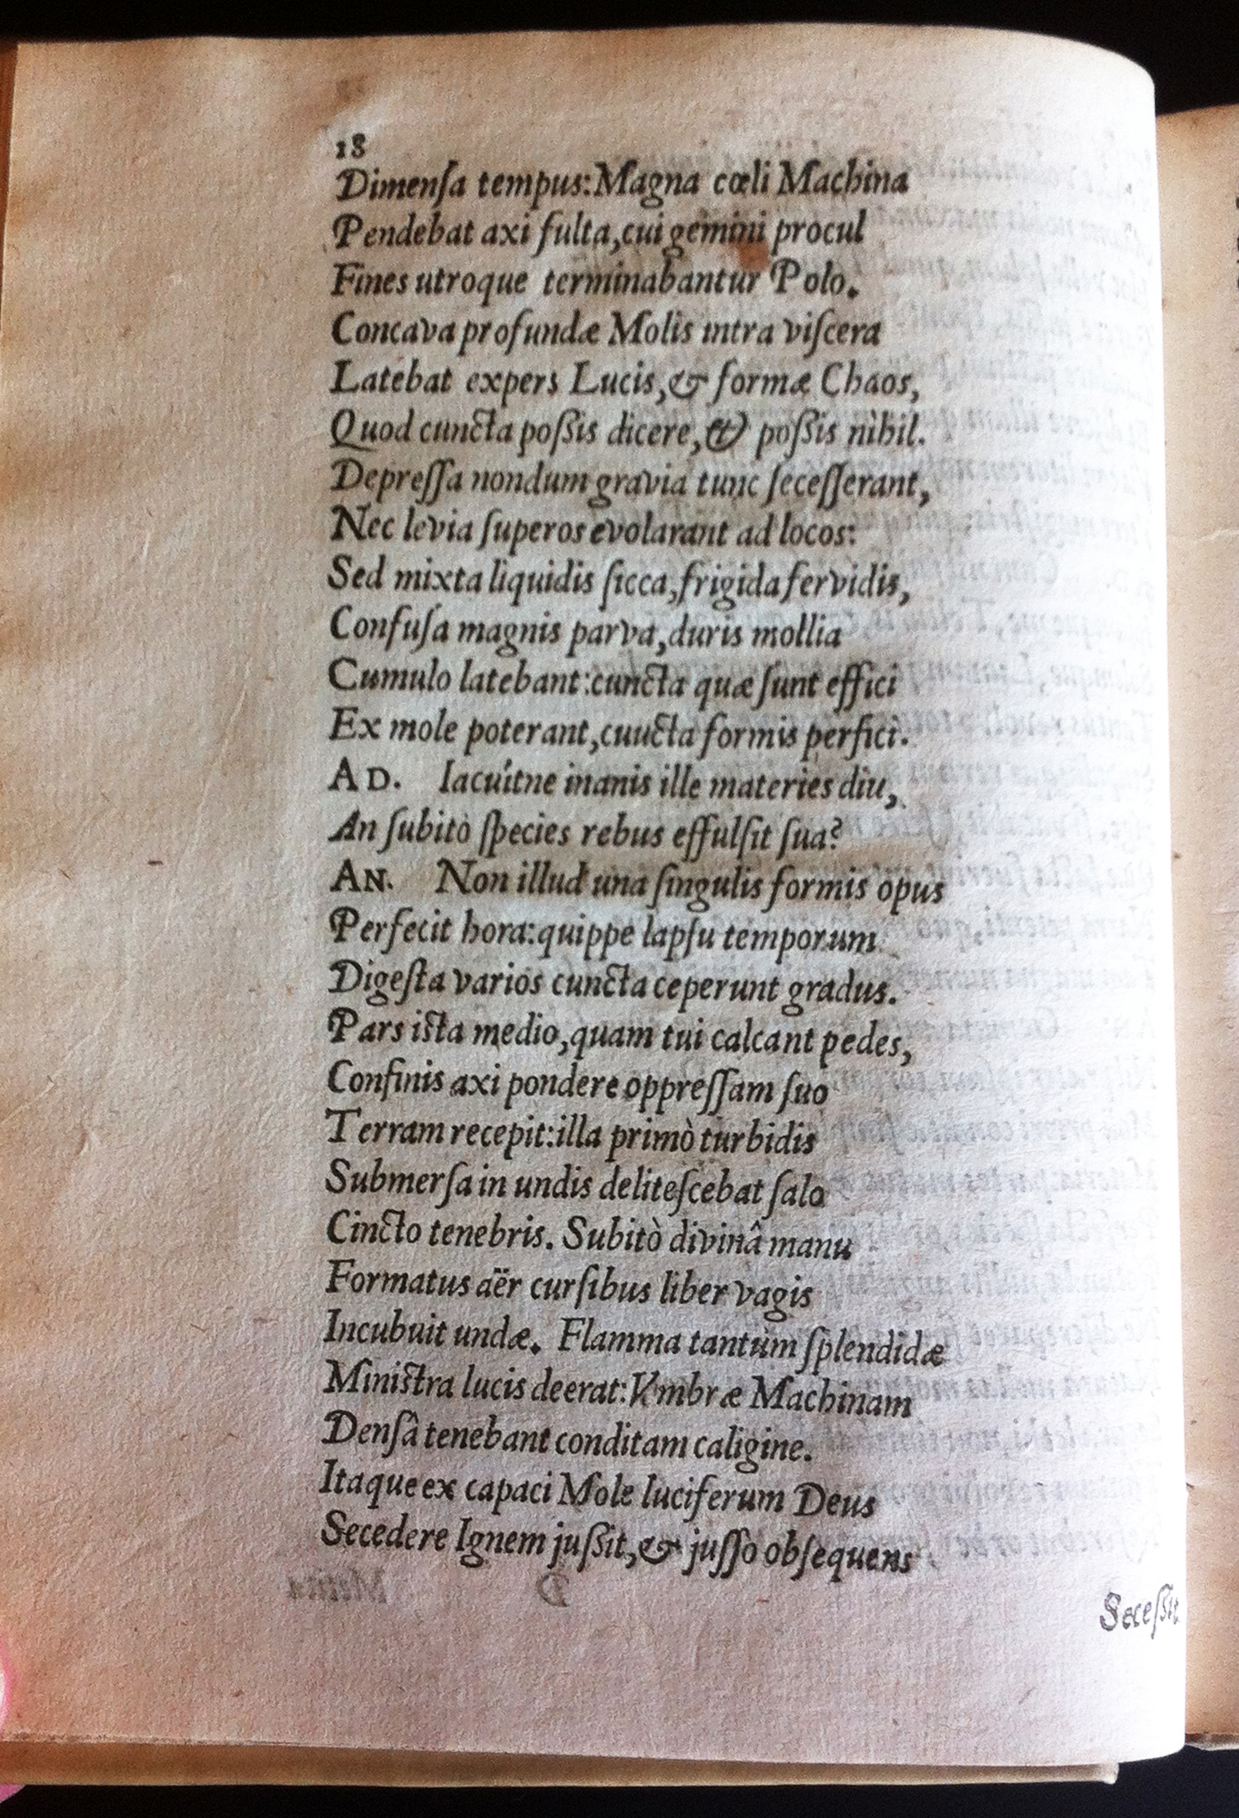 18
Dimenſa tempus: Magna cœli Machina
Pendebat axi fulta, cui gemini procul
Fines utroque terminabantur Polo.
Concava profundæ Molis intra viſcera
Latebat expers Lucis, & formæ Chaos,
Quod cuncta poſſis dicere, & poſſis nìhil.
Depreſſa nondum gravia tunc ſeceſſerant,
Nec levia ſuperos evolarant ad locos:
Sed mixta liquidis ſicca, frigida fervidis,
Confuſa magnis parva, duris mollia
Cumulo latebant: cuncta quæ ſunt effici
Ex mole poterant, cuucta formis perfici.
AD. Iacuitne inanis ille materies diu,
An ſubitò ſpecies rebus effulſit ſua?
AN. Non illud una ſingulis formis opus
Perfecit hora: quippe lapſu temporum
Digeſta varios cuncta ceperunt gradus.
Pars iſta medio, quam tui calcant pedes,
Confinis axi pondere oppreſſam ſuo
Terram recepit: illa primò turbidis
Submerſa in undis deliteſcebat ſalo
Cincto tenebris. Subitò divinâ manu
Formatus aër curſibus liber vagis
Incubuit undæ. Flamma tantùm ſplendidæ
Miniſtra lucis deerat: Vmbræ Machinam
Denſâ tenebant conditam caligine.
Itaque ex capaci Mole luciferum Deus
Secedere Ignem juſſit, & juſſo obſequens
Seceſſit